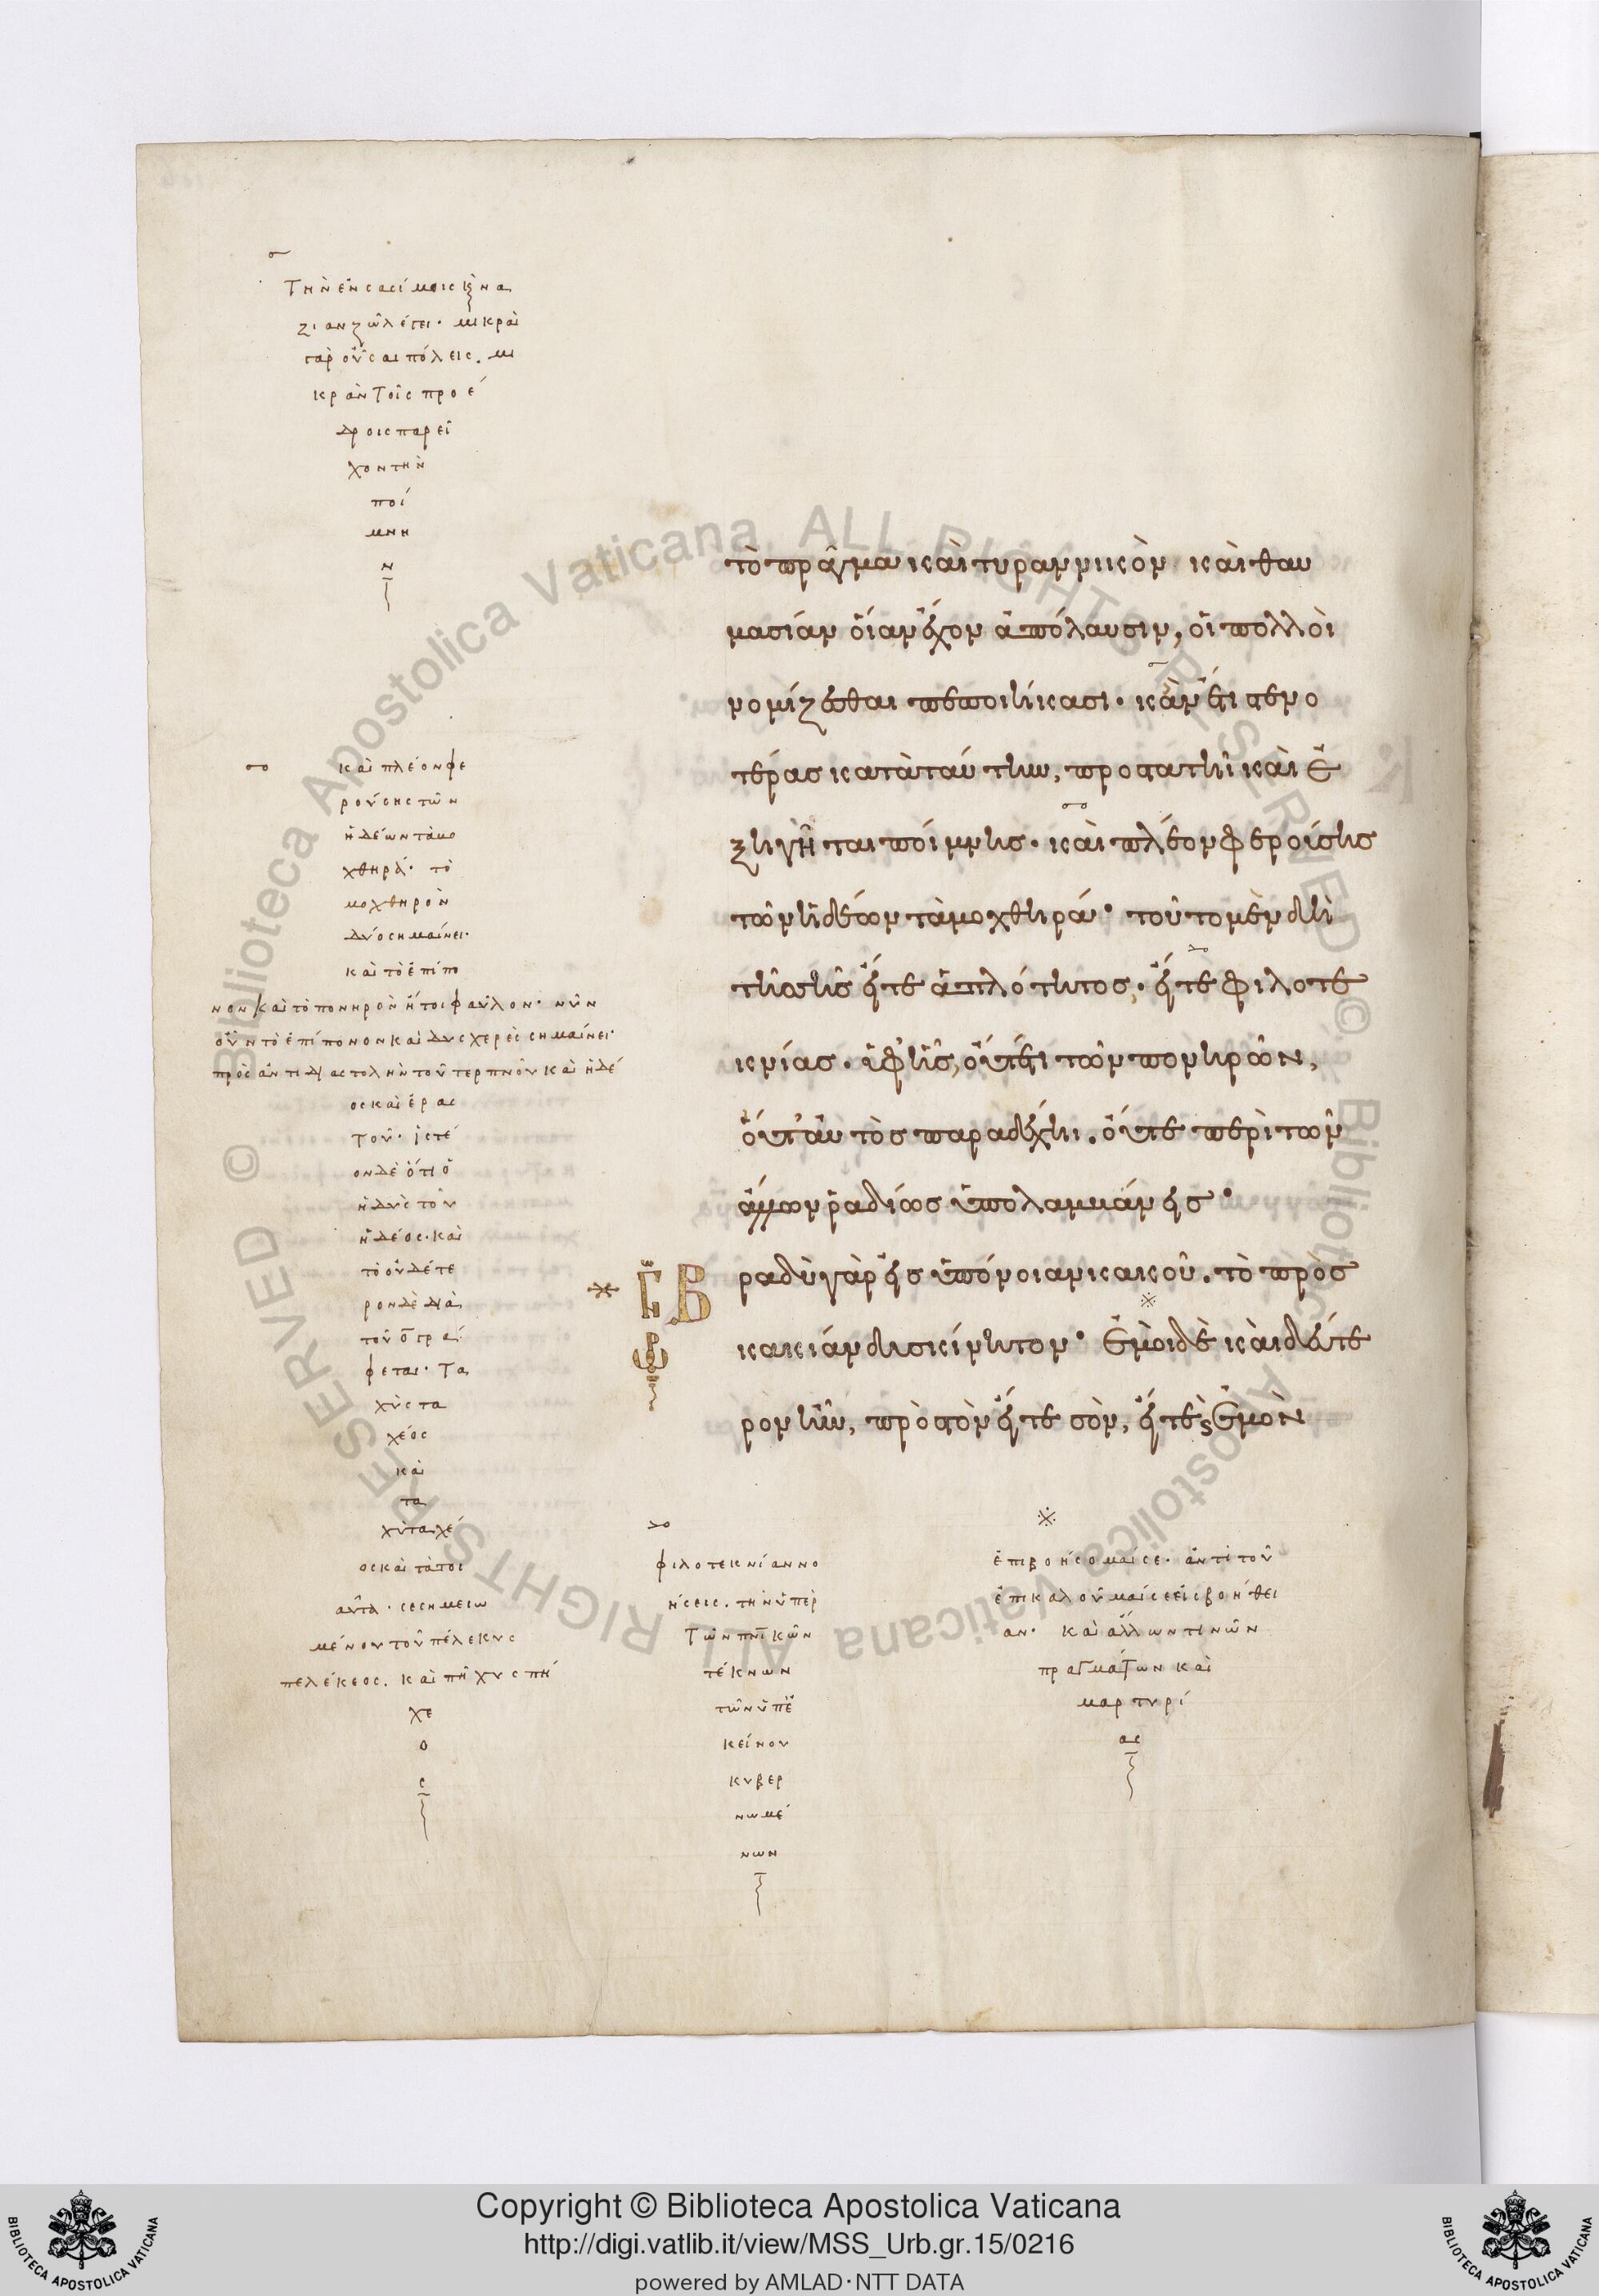 Τὴν ἐν σασίμοις κὲ να
ζιανζῶ λέγει· μικραὶ
γὰρ οὖσαι πόλεις. μι
κρὰν τοῖς προέ
δροις παρεῖ
χον τὴν
ποί
μνη
ν
τὸ πρᾶγμα καὶ τυραννικὸν καὶ θαυ
μασίαν οἵαν ἔχον ἀπόλαυσιν, οἱ πολλοὶ
νομίζεσθαι πεποιήκασι· κἂν ἔτι στενο
τέρας κατὰ ταύτην, προστατῇ καὶ ἐ
ξηγῆται ποίμνης· καὶ πλέον φεροίσης
τῶν ἡδέων τὰ μοχθηρά· τοῦτο μὲν δὴ
τῆς σῆς εἴτε ἁπλότητος· εἴτε φιλοτε
κνίας· ἐφ' ἧς, οὔτέ τι τῶν πονηρῶν,
οὔτ' αὐτὸς παραδέχῃ. οὔτε περὶ τῶν
ἄλλων ῥαδίως ὑπολαμβάνεις·
βραδὺ γὰρ εἰς ὑπόνοιαν κακοῦ. τὸ πρὸς
κακίαν δυσκίνητον· Ἐμοὶ δὲ καὶ δεύτε
ρον ἦν, πρὸς τὸν εἴτε σὸν, εἴτε ἐμὸν
καὶ πλέον φε
ρούσης τῶν
ἡδέων τὰ μο
χθηρά· τὸ
μοχθηρὸν
δύο σημαίνει·
καὶ τὸ ἐπίπο
νον καὶ τὸ πονηρὸν ἤτοι φαῦλον· νῦν
οὖν τὸ ἐπίπονον καὶ δυσχερὲς σημαίνει·
πρὸς ἀντιδιαστολὴν τοῦ τερπνοῦ καὶ ἡδέ
ος καὶ ἐρασ
τοῦ· ἰστέ
ον δὲ ὅτι ὁ
ἡδὺς τοῦ
ἡδέος· καὶ
τὸ οὐδέτε
ρον δὲ διὰ
τοῦ ο γρά
φεται· Τα
χὺς τα
χέος
καὶ
τα
χὺ ταχέ
ος καὶ τὰ τοι
αῦτα· σεσημειω
μένου τοῦ πέλεκυς
πελέκεος. καὶ πῆχυς πή
χε
ο
ς
φιλοτεκνίαν νο
ήσεις. τὴν ὑπὲρ
Τῶν πνικῶν
τέκνων
τῶν ὑπ' ἐ
κείνου
κυβερ
νωμέ
νων
ἐπιβοήσομαί σε· ἀντὶ τοῦ
ἐπικαλοῦμαί σε εἰς βοήθει
αν· καὶ ἄλλων τινῶν
πραγμάτων καὶ
μαρτυρί
ας
Copyright © Biblioteca Apostolica Vaticana
http://digi.vatlib.it/view/MSS_Urb.gr.15/0216
powered by AMLAD·NTT DATA
BIBLIOTECA APOSTOLICA VATICANA
BIBLIOTECA APOSTOLICA VATICANA
© Biblioteca Apostolica Vaticana ALL RIGHTS RESERVED
© Biblioteca Apostolica Vaticana ALL RIGHTS RESERVED